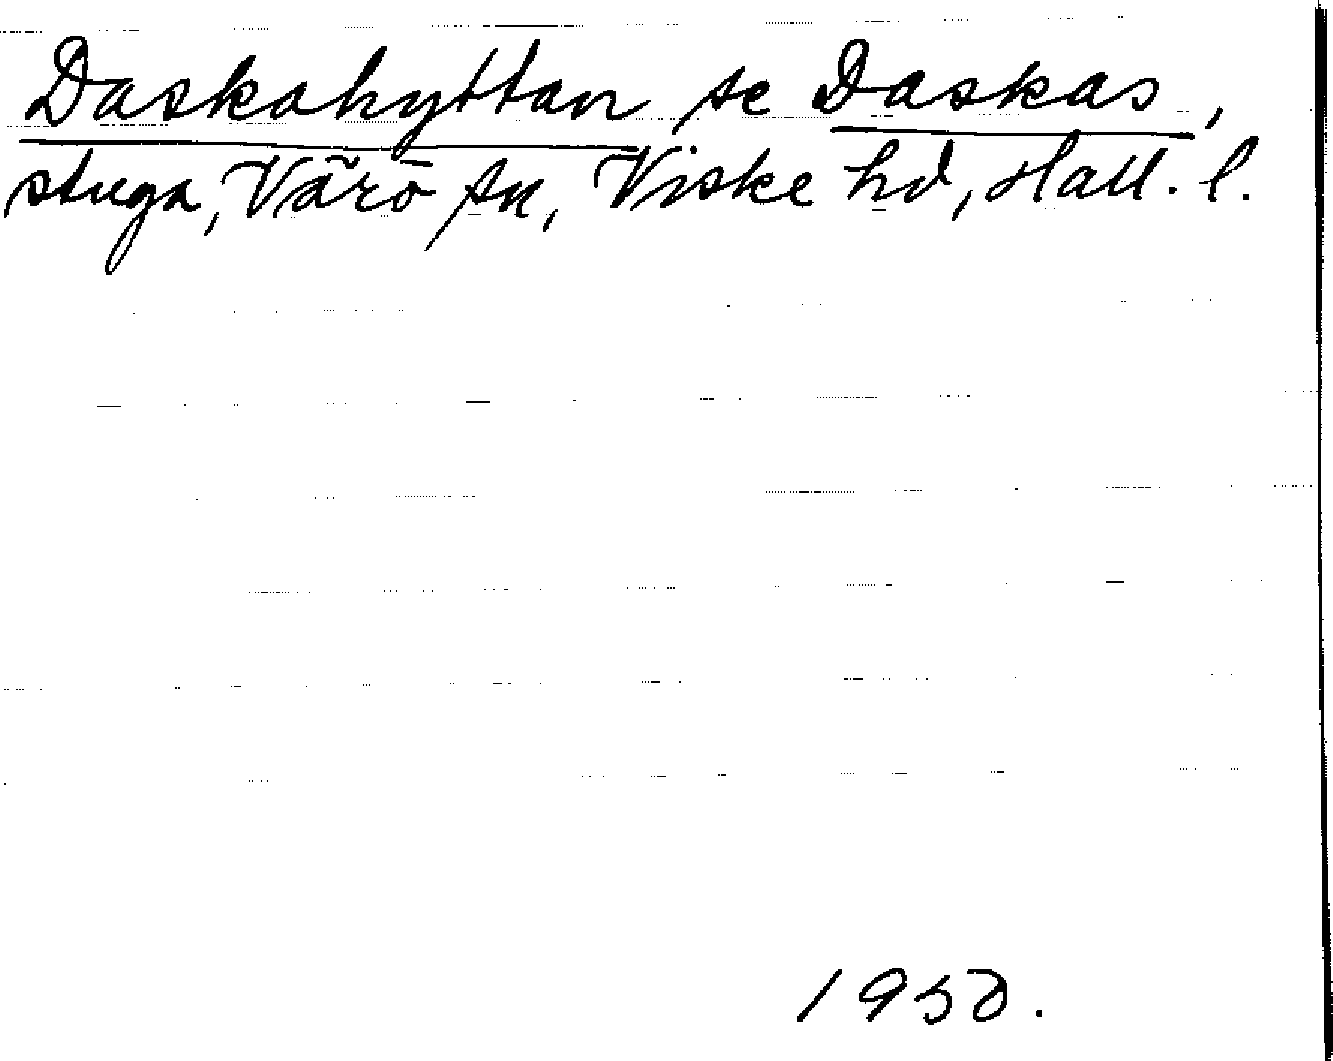 Daskahyttan se Daskas,
stuga, Värö sn, Viske hd, Hall. l.
1950.